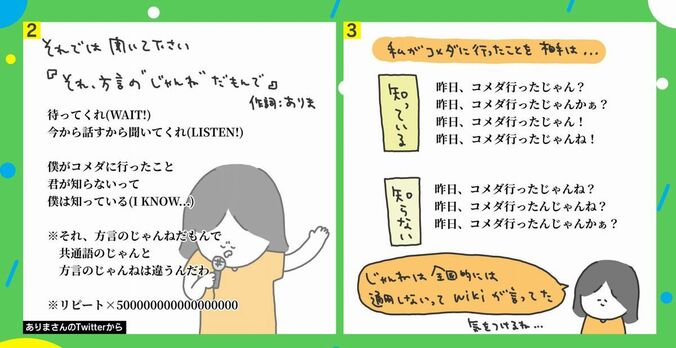 2
それでは聞いて下さい
『それ、方言の"じゃんね"だもんで』
作詞:ありま
待ってくれ(WAIT!)
今から話すから聞いてくれ(LISTEN!)
僕がコメダに行ったこと
君が知らないって
僕は知っている(I KNOW...)
※それ、方言のじゃんねだもんで
共通語のじゃんと
方言のじゃんねは違うんだわ
※リピート×500000000000000000
ありまさんのTwitterから
3
私がコメダに行ったことを相手は...
知っている
昨日、コメダ行ったじゃん?
昨日、コメダ行ったじゃんかぁ?
昨日、コメダ行ったじゃん!
昨日、コメダ行ったじゃんね!
知らない
昨日、コメダ行ったじゃんね?
昨日、コメダ行ったんじゃんね?
昨日、コメダ行ったんじゃんかぁ?
じゃんねは全国的には
通用しないってwikiが言ってた
気をつけるね...